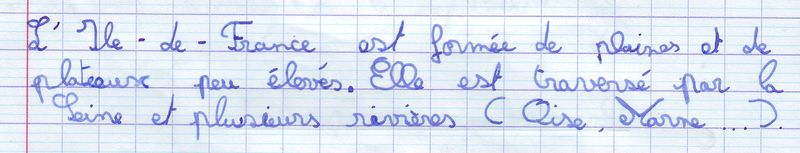 L'Ile-de-France est formée de plaines et de
plateaux peu élevés. Elle est traversé par la
Seine et plusieurs rivières (Oise, Marne ...).